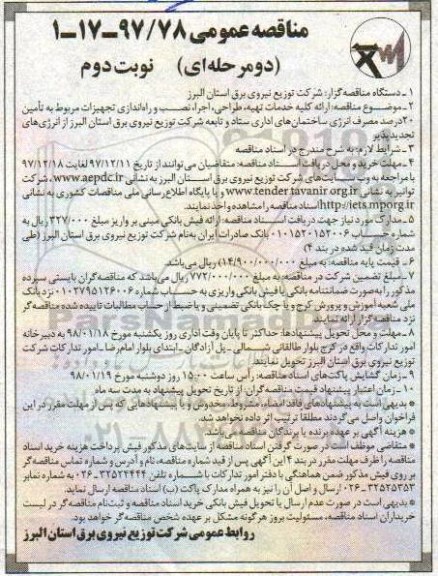 مناقصه عمومی ۹۷/۷۸-۱۷-۱
(دومرحله‌ای) نوبت دوم
۱-دستگاه مناقصه‌گزار: شرکت توزیع نیروی برق استان البرز
۲-موضوع مناقصه: ارائه کلیه خدمات تهیه، طراحی، اجرا، نصب و راه‌اندازی تجهیزات مربوط به تأمین
۲۰درصد مصرف انرژی ساختمان‌های اداری ستاد و تابعه شرکت توزیع نیروی برق استان البرز از انرژی‌های
تجدیدپذیر
۳-شرایط لازم: به شرح مندرج در اسناد مناقصه
۴-مهلت خرید و محل دریافت اسناد مناقصه: متقاضیان می‌توانند از تاریخ ۹۷/۱۲/۱۱ لغایت ۹۷/۱۲/۱۸
با مراجعه به وب سایت‌های شرکت توزیع نیروی برق استان البرز به نشانی www.aepdc.ir، شرکت
توانیر به نشانی www.tender.tavanir.org.ir و یا پایگاه اطلاع‌رسانی ملی مناقصات کشوری به نشانی
http://iets.mporg.ir اسناد مناقصه را مشاهده و اخذ نمایند.
۵-مدارک مورد نیاز جهت دریافت اسناد مناقصه: ارائه فیش بانکی مبنی بر واریز مبلغ ۳۲۷/۰۰۰ ریال به
شماره حساب ۰۱۰۱۵۲۰۱۵۲۰۰۶ بانک صادرات ایران به‌نام شرکت توزیع نیروی برق استان البرز (طی
مدت زمان قید شده در بند ۴)
۶-قیمت پایه مناقصه: به مبلغ (۱۴/۹۰۰/۰۰۰/۰۰۰) ریال می‌باشد
۷-مبلغ تضمین شرکت در مناقصه: به مبلغ ۷۷۲/۰۰۰/۰۰۰ ریال می‌باشد که مناقصه‌گران بایستی سپرده
مذکور را به‌صورت ضمانتنامه بانکی یا فیش بانکی واریزی به حساب شماره ۰۱۰۲۷۹۵۱۲۶۰۰۶ نزد بانک
ملی شعبه آموزش و پرورش کرج و یا چک بانکی تضمینی و یا ضبط از حساب مطالبات تایید شده مناقصه‌گر
نزد مناقصه‌گزار ارائه نمایند.
۸-مهلت و محل تحویل پیشنهادها: حداکثر تا پایان وقت اداری روز یکشنبه مورخ ۹۸/۰۱/۱۸ به دبیرخانه
امور تدارکات واقع در کرج بلوار طالقانی شمالی-پل آزادگان-ابتدای بلوار امام رضا-امور تدارکات شرکت
توزیع نیروی برق استان البرز تحویل نمایند.
۹-زمان گشایش پاکت‌های اسناد مناقصه: رأس ساعت ۱۵:۰۰ روز دوشنبه مورخ ۹۸/۰۱/۱۹
۱۰-زمان اعتبار پیشنهاد قیمت مناقصه‌گران: از تاریخ تحویل پیشنهاد به مدت سه ماه
* بدیهی است به پیشنهادهای فاقد امضاء، مشروط، مخدوش و یا پیشنهادهایی که پس از مهلت مقرر در این
فراخوان واصل می‌گردند مطلقا ترتیب اثر داده نخواهد شد.
* هزینه آگهی بر عهده برنده یا برندگان مناقصه می‌باشد.
* متقاضی موظف است در صورت گرفتن اسناد مناقصه از سایت‌های مذکور فیش پرداخت هزینه خرید اسناد
مناقصه را ظرف مهلت مقرر در بند ۴ این آگهی پس از قید شماره مناقصه، نام و آدرس و شماره تماس مناقصه‌گر
بر روی فیش مذکور ضمن هماهنگی با دفتر امور تدارکات با شماره تلفن ۳۲۵۲۲۴۴۴-۰۲۶ به شماره نمابر
۳۲۵۲۵۳۵۳-۰۲۶ ارسال و اصل آن را نیز به همراه مدارک پاکت (ب) اسناد مناقصه ارسال نماید.
* بدیهی است در صورت عدم ارسال یا تحویل فیش بانکی خرید اسناد مناقصه و ثبت‌نام مناقصه‌گر در لیست
خریداران اسناد مناقصه، مسئولیت بروز هرگونه مشکل بر عهده شخص مناقصه‌گر خواهد بود.
روابط عمومی شرکت توزیع نیروی برق استان البرز